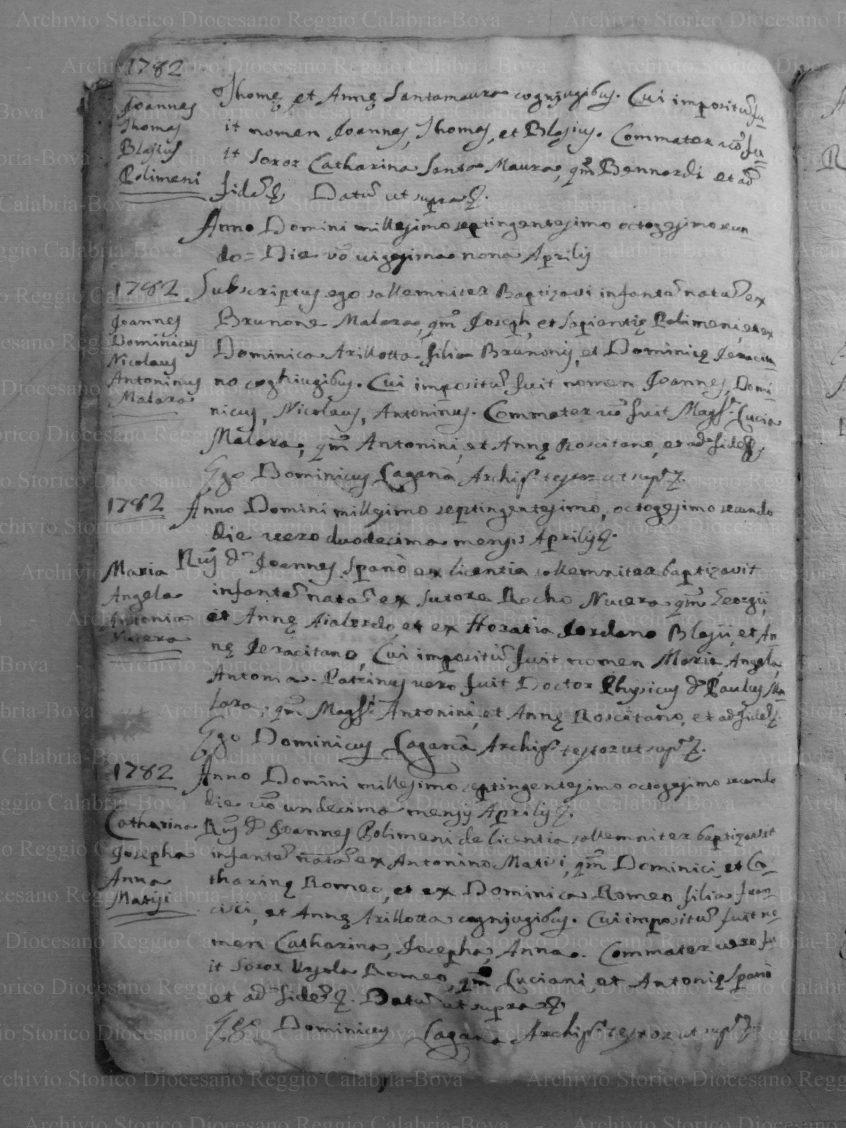 1782
Joannes
Thomas
Blasius
Polimeni
Thomę, et Annę Santamaura cognjugibus. Cui impositū fu-
it nomen Joannes, Thomas, et Blasius. Commater vēo fu-
it Soror Catharina Santa Maura, qm̄ Bennardi et ad
fidē &. Datū ut supra &.
Anno Domini millesimo septingentesimo octogesimo secun
do = Die vēo vigesima nona Aprilis
1782
Joannes
Dominicus
Nicolaus
Antoninus
Malara
Subscriptus ego sollemniter Baptizavi infantē natū ex
Brunone Malara, qm̄ Joseph, et Sapientię Polimeni, et ex
Dominica Arillotta filia Brunonis, et Dominicę Jeracita
no cogniugibus. Cui impositū fuit nomen Joannes, Domi
nicus, Nicolaus, Antoninus. Commater vēo fuit Magf. Lucia
Malara, qm̄ Antonini, et Annę Roscitano, et ad fidē &,
Ego Dominicus Laganà Archip. testor ut sup. &.
1782
Anno Domini millesimo septingentesimo, octogesimo secundo
die vero duodecima mensis Aprilis &.
Maria
Angela
Antonia
Nucera
Rus D. Joannes Spanò ex licentia sollemniter baptizavit
infantē natā ex Sutore Rocho Nucera qm̄ Georgii,
et Annę Aialordo et ex Horatia Jordano Blasii, et An
nę Jeracitano, Cui impositū fuit nomen Maria, Angela,
Antonia. Patrinus vero fuit Doctor Physicus D. Paulus Ma
lara, qm̄ Magf. Antonini, et Annę Roscitano, et ad fidē &.
Ego Dominicus Laganà Archip. testor ut sup. &.
1782
Anno Domini millesimo septingentesimo octogesimo secundo
die vēo undecima mensis Aprilis &.
Catharina
Josepha
Anna
Matisi
Rus D. Joannes Polimeni de licentia sollemniter baptizavit
infantē natā ex Antonino Matisi, qm̄ Dominici, et Ca
tharinę Romeo, et ex Dominica Romeo filia Fran
cisci, et Annę Arillotta cognjugibus. Cui impositū fuit no
men Catharina, Josepha Anna. Commater vero fu
it Soror Ursola Romeo qm̄ Luciani, et Antonię Spanò
et ad fidē &. Datū ut supra &,
Ego Dominicus Laganà Archip. testor ut sup. &.
Archivio Storico Diocesano Reggio Calabria-Bova